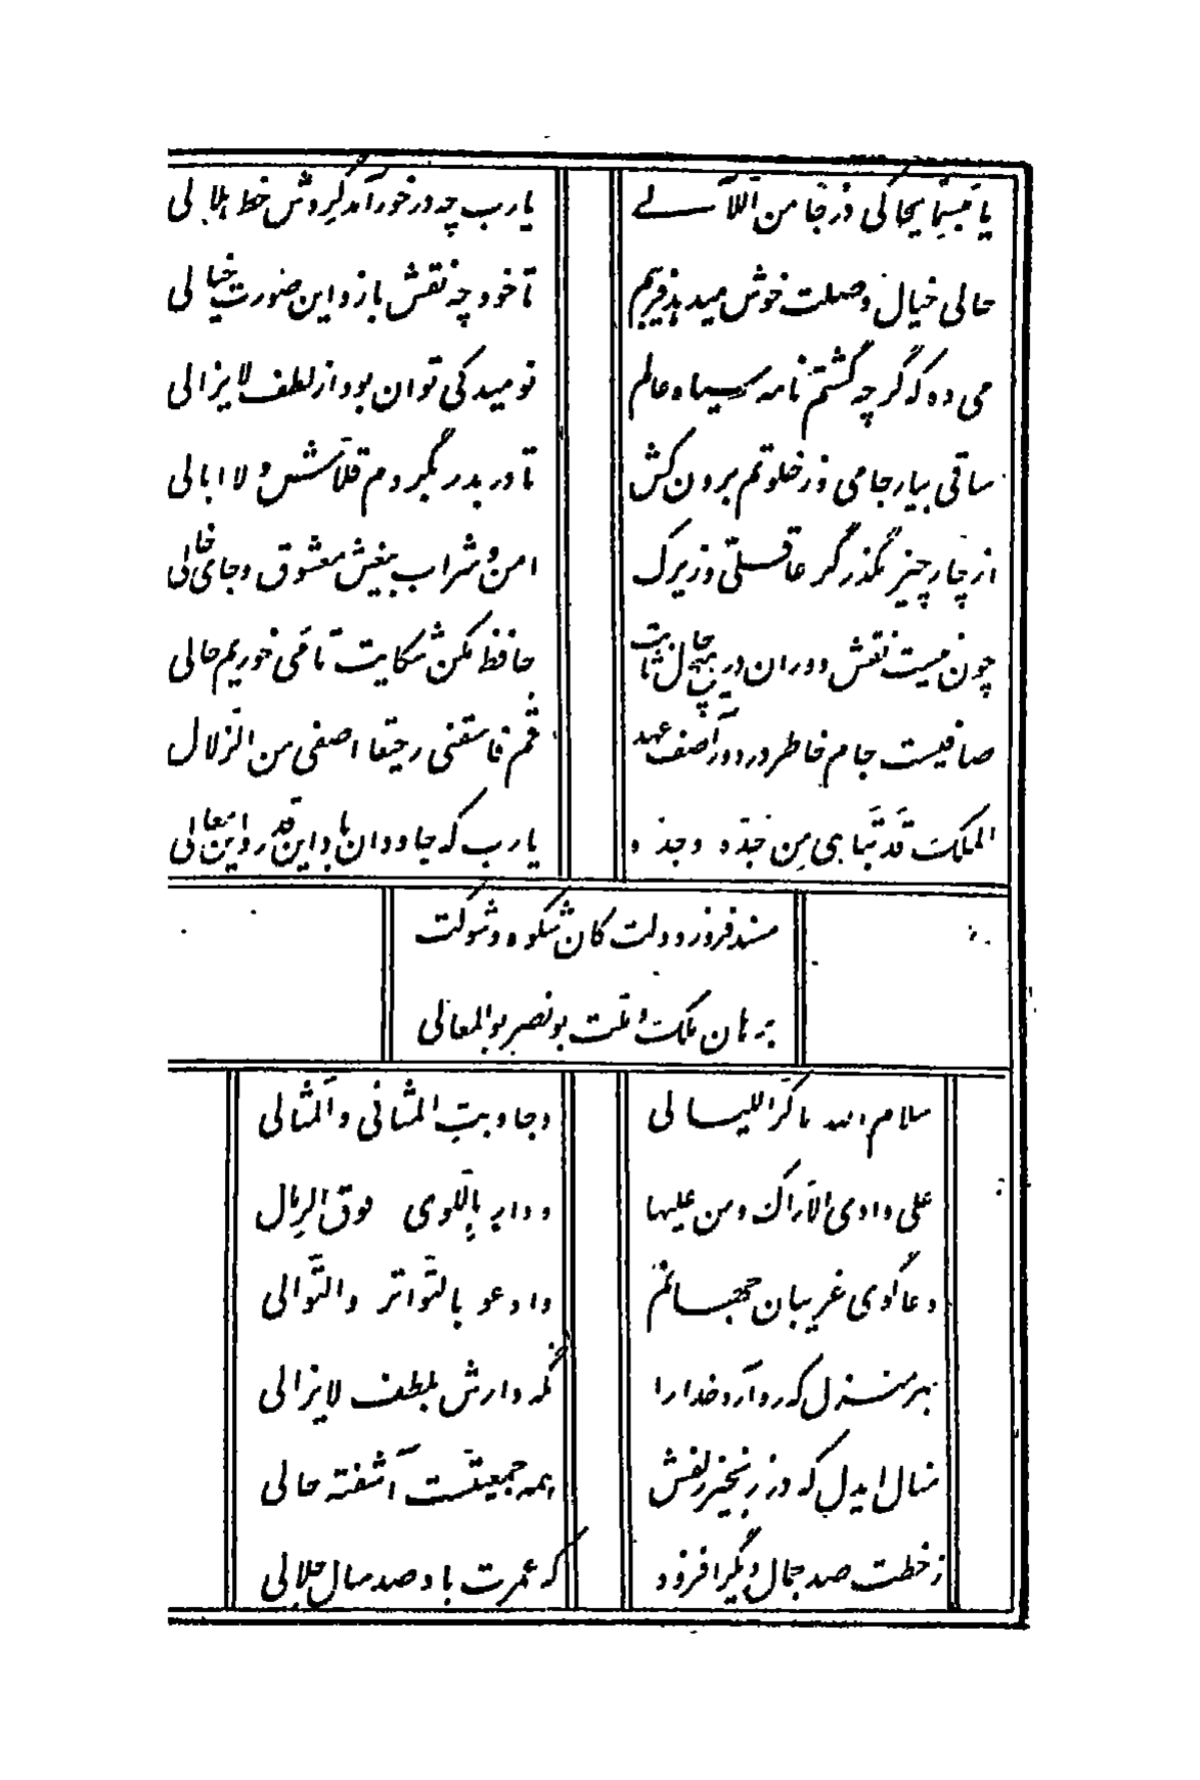 یا مبسما یحاکی درجا من اللآلی یارب چه درخور آمد گردش خط هلالی
حالی خیال وصلت خوش میدهد فریبم تا خود چه نقش بازد این صورت خیالی
می ده که گرچه گشتم نامه سیاه عالم نومید کی توان بود از لطف لایزالی
ساقی بیار جامی وز خلوتم برون کش تا در بدر بگردم قلاش و لاابالی
از چار چیز مگذر گر عاقلی و زیرک امن و شراب بیغش معشوق و جای خالی
چون نیست نقش دوران در هیچ حال ثابت حافظ مکن شکایت تا می خوریم حالی
صافیست جام خاطر در دور آصف عهد قم فاسقنی رحیقا اصفی من الزلال
الملک قد تباهی من جده و جده یارب که جاودان باد این قدر و این معالی
مسند فروز دولت کان شکوه و شوکت
برهان ملک و ملت بونصر بوالمعالی
سلام الله ما کر اللیالی وجاوبت المثانی والمثالی
علی وادی الاراک ومن علیها ودار باللوی فوق الرمال
دعاگوی غریبان جهانم وادعو بالتواتر والتوالی
بهر منزل که رو آرد خدا را نگه دارش بلطف لایزالی
منال ایدل که در زنجیر زلفش همه جمعیتست آشفته حالی
ز خطت صد جمال دیگر افزود که عمرت باد صد سال جلالی